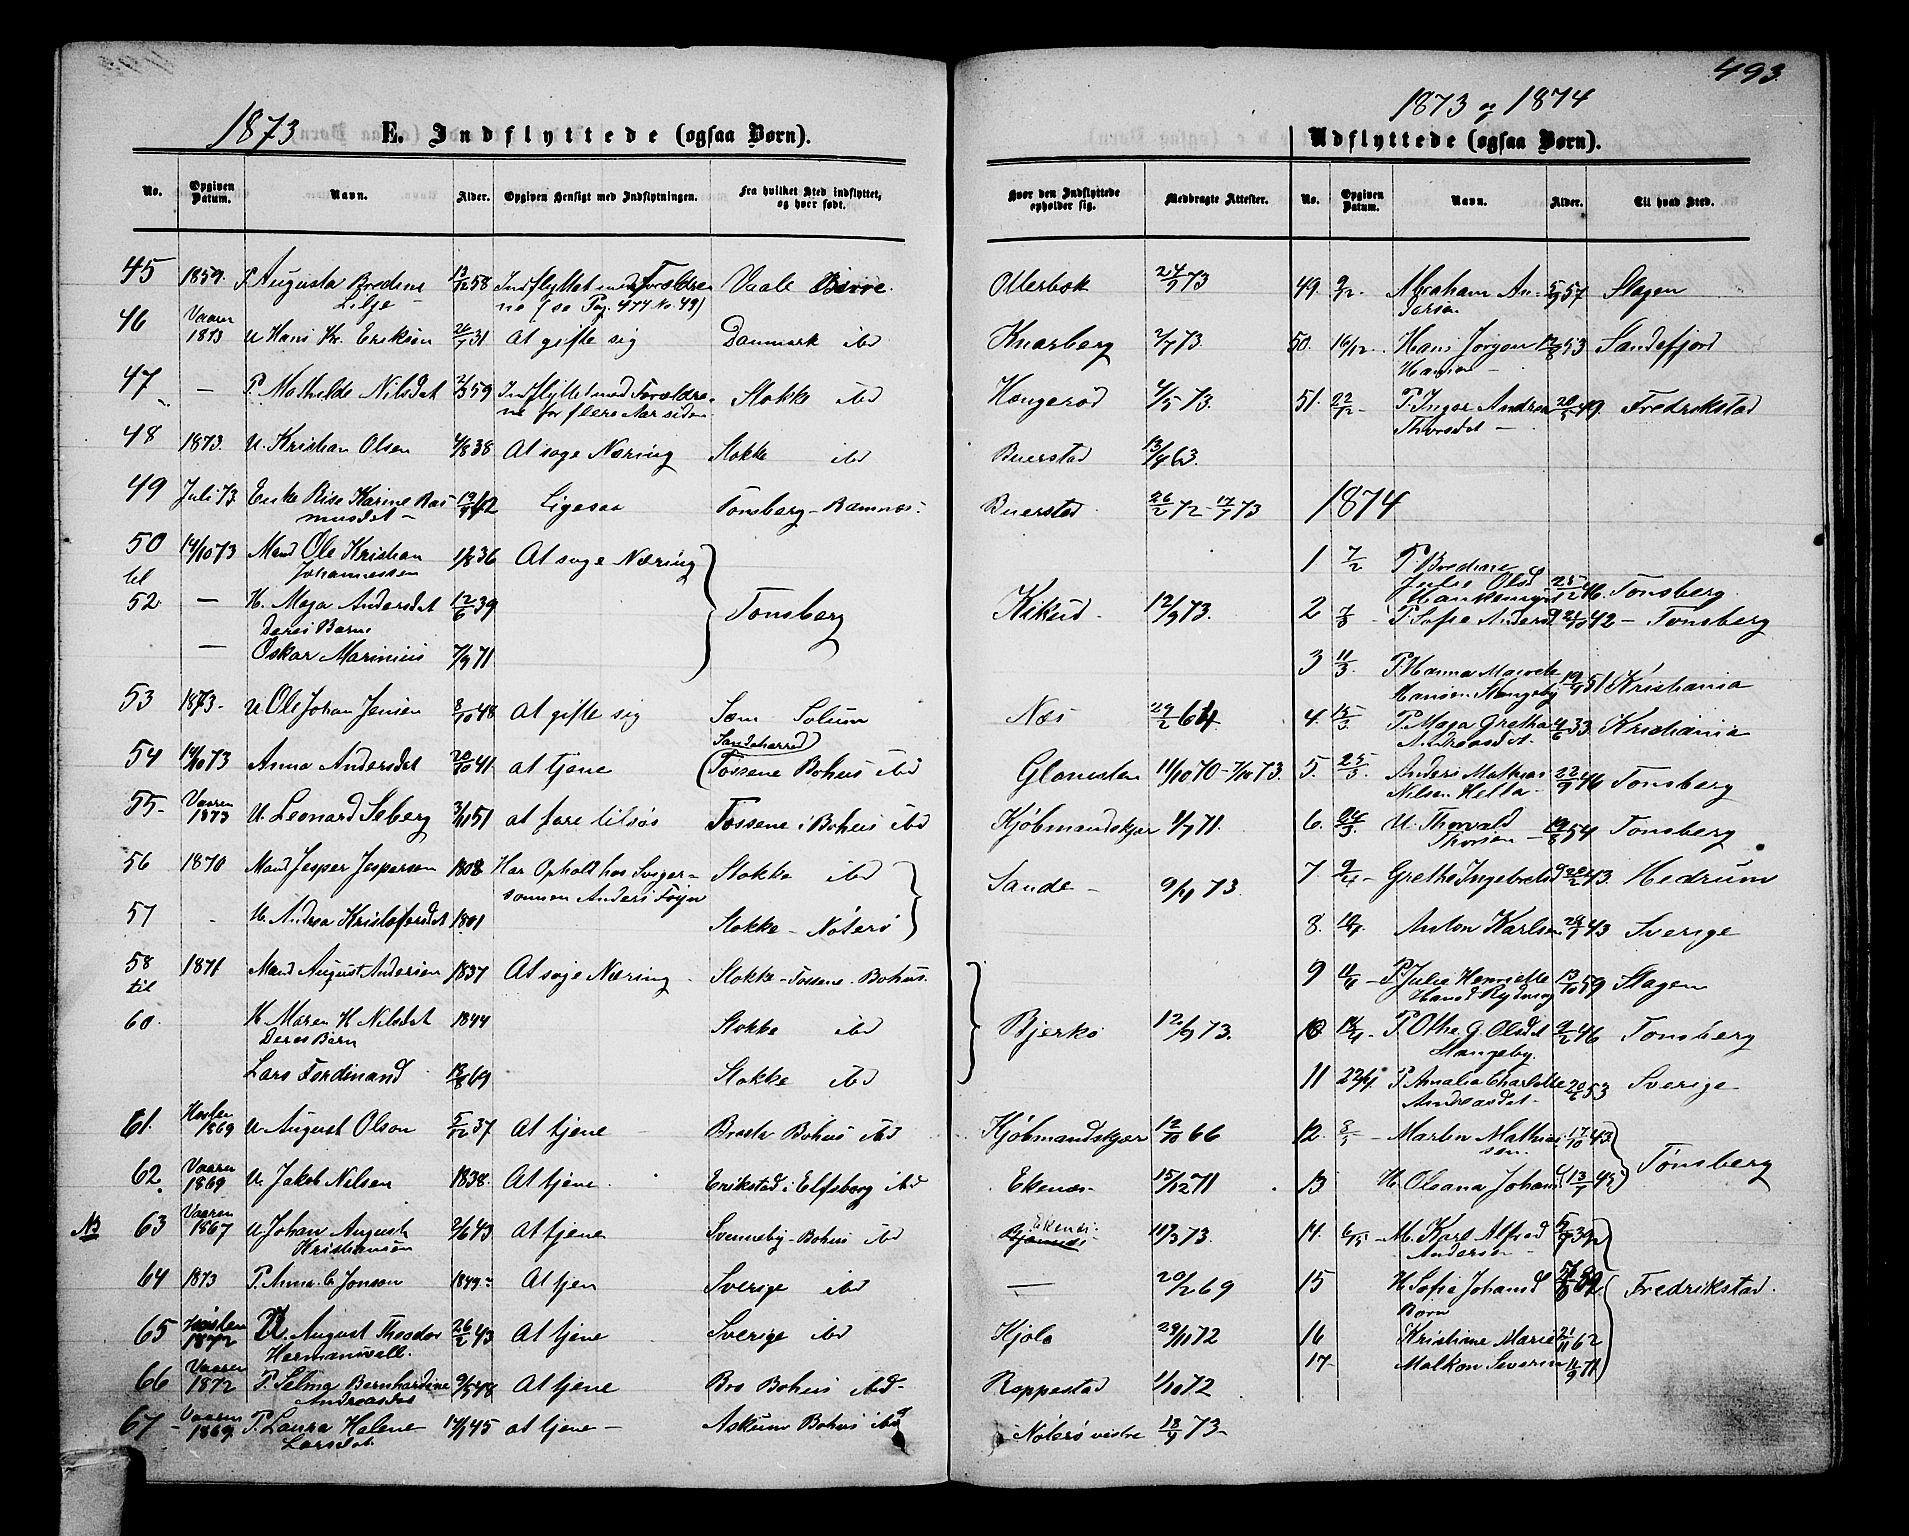 493.
1873
E. Indflyttede (ogsaa Børn).
1873 og 1874
Udflyttede (ogsaa Børn).
No. Opgiven Datum. Navn. Alder. Opgiven Hensigt med Indflytningen. Fra hvilket Sted indflyttet, og hvor født. Hvor den Indflyttede opholder sig. Medbragte Attester.
45 1859. P. Augusta Bredine 13/12 58 Indflyttet med Forældre Vaale Borre Ollerbok 24/9 73
Lilje ne (se Pag. 477 No 49)
46 Vaaren 1873 U Hans Kr. Eriksen 26/7 31 At gifte sig Danmark ibd Knarberg 2/7 73.
47 — P. Mathilde Nilsdat 2/3 59 Indflyttet med Forældre Stokke ibd 4/5 73.
ne for flere Aar siden
48 1873. U. Kristian Olsen 4/8 38 At søge Næring Stokke ibd Buerstad 13/4 63.
49 Juli 73 Enke Karine Ras Ligesaa Tønsberg – Ramnes. Buerstad 26/2 72 – 17/7 73
musdat –
50 14/10 73 Mand Ole Kristian 1/8 36 At søge Næring
til Johannessen
52. — H. Maja Andersdat 12/6 39 Tønsberg Kikud 12/9 73.
Deres Barn
— Oskar Marinius 7/9 71
53 1873 – U Ole Johan Jensen 8/10 48 At gifte sig Sem Solum Næs 29/2 64
54 14/10 73 Anna Andersdat 20/10 41. at tjene Sandeherred (Tossene Bohus ibd 11/10 70 – 7/10 73.
55 – Vaaren 1873 U. Leonard Seberg 3/11 51 at fare tilsøs Tossene i Bohus ibd Kjøbmandskjær 1/7 71.
56 1870 Mand Jesper Jespersen 1808 Har Ophold hos Sviger- Stokke ibd Sande – 9/4 73.
sønnen Anders Føyn
57 H. Andrea Kristofersdat 1801 Stokke – Nøterø
58 1871 Mand August Andersen 1837 At søge Næring Stokke – Tossene. Bohus.
til
60. H. Maren H Nilsdat 1844 Stokke ibd Bjerkø 12/9 73.
Deres Barn
Lars Ferdinand 18/8 69 Stokke ibd
61. Høsten 1869 U August Olson 5/12 37 At tjene Bohus ibd Kjøbmandskjær 12/10 66
62. Vaaren 1869 U. Jakob Nilsen 1838. At tjene. Erikstad i Elfsborg ibd Ekenæs 15/12 71
NB 63 Vaaren 1867 U Johan August 2/6 43 At tjene Svenneby – Bohus ibd Ekenæs 11/3 73.
Kristiansen
64 1873 P. Anna C Jonson 1849 – At tjen Sverige ibd — 20/2 69
65 Høsten 1872 U. August Theodor 26/2 43 At tjene Sverige ibd Kjølø 29/11 72
Hermanvall.
66 Vaaren 1872 P. Selma Bernhardine 9/5 48 At tjene Bro Bohus ibd – Roppestad 1/10 72
Andreasdat
67 – Vaaren 1869. P. Laura Helene 14/1 45 at tjene – Askum Bohus ibd Nøterø vestre 18/9 73 –
Larsdat
No. Opgiven Datum. Navn. Alder. Til hvad Sted.
49. 9/12 – Abraham An- 5/9 57 Slagen
dersen
50. 16/12. Hans Jørgen 12/8 53 Sandefjord
Hansen –
51. 22/12 P. Inger Andrea 20/5 49. Fredrikstad
Thorsdat –
1874
1 7/2 P. Bredine
Julie Olsd 25/12 46. Tønsberg.
2 7/3 – P. Sofie Andersd 24/10 42 – Tønsberg
3 11/3 P. Hanna
Hansen 19/9 51 Kristiania
4. 15/3 P. Maja Grethe 4/6 33 Kristiania
Andreasdat.
5. 25/3. Anders Mathias 22/9 46 Tønsberg
Nilsen Hella –
6. 24/3. U. Thorvald 19/8 54 Tønsberg
Thorsen –
7. 9/4 – Grethe Ingebretsd 20/2 43. Hedrum
8. 10/4 Anton Karlsen 24/7 43 Sverige
9 11/4 – P. Julie Henriette 13/10 59 Slagen
Hansd
10 14/4 – P. Othe. G. Olsdat 9/2 46 Tønsberg
Stangeby.
11 22/4 P. Amalia Charlotte 20/6 53 Sverige –
Andreasdat –
12. 8/5 – Martin Mathia 17/10 43
sen. Tønsberg
13 H. Oleana Johans 13/7 43
14. 6/5 – M. Karl Alfred 5/9 39
Andersen –
15 H Sofie Johansd Fredrikstad.
Børn
16 Kristine Marie 21/11 62
17. Malkon Severin 11/9 71